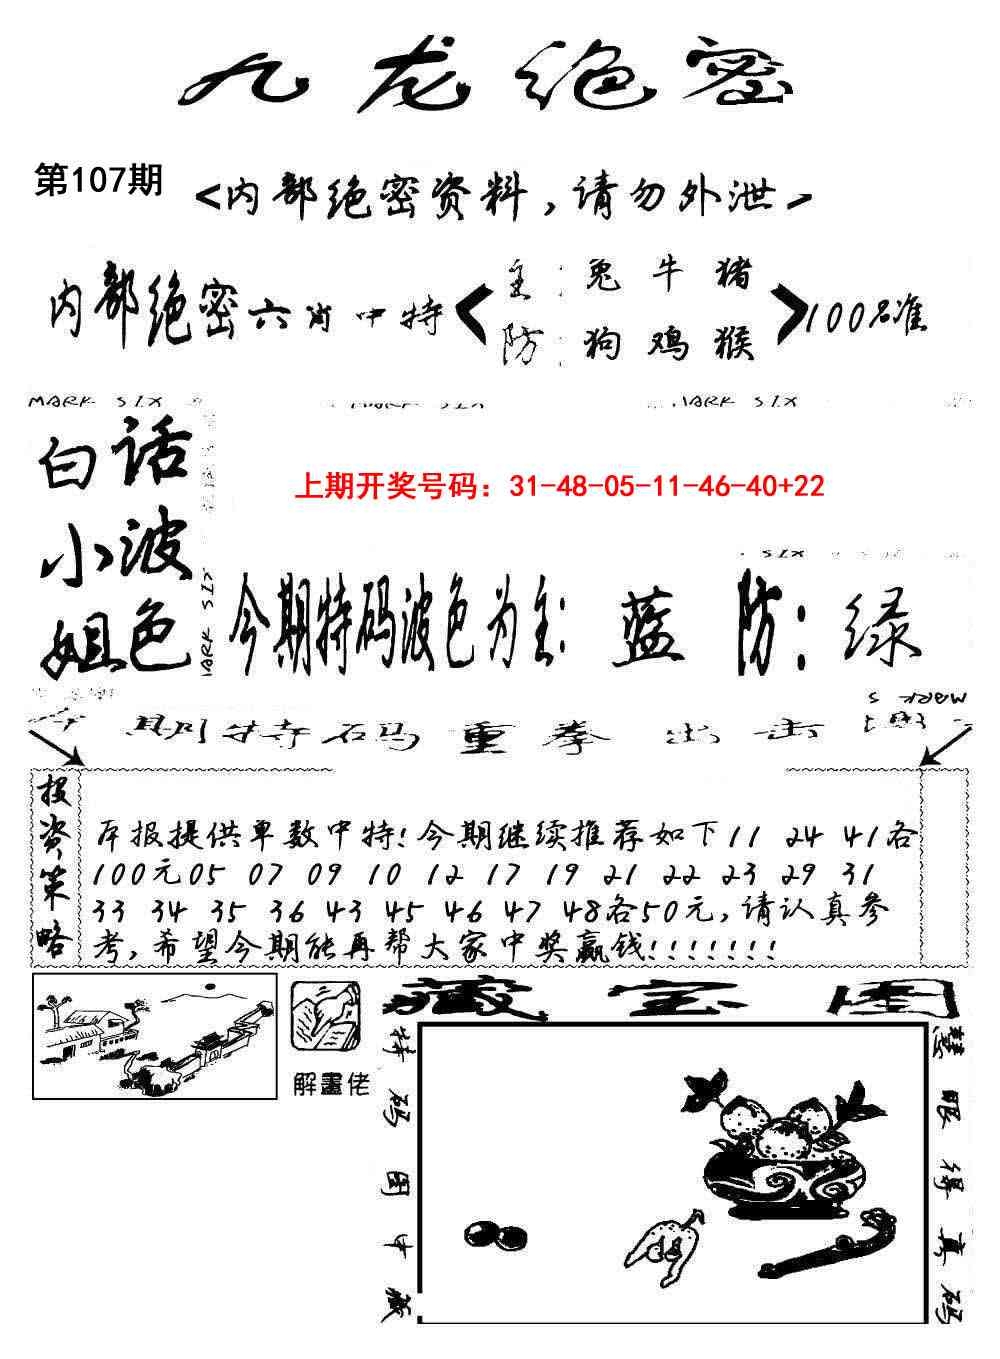 九龙绝密
第107期
<内部绝密资料，请勿外泄>
内部绝密六肖中特
主：兔 牛 猪
防：狗 鸡 猴
100%准
MARK SIX
MARK SIX
MARK SIX
白话
小波
姐色
MARK SIX
上期开奖号码：31-48-05-11-46-40+22
SIX
今期特码波色为主：蓝 防：绿
MARK S
期特码重拳出击
投资策略
本报提供单数中特！今期继续推荐如下11 24 41各
100元05 07 09 10 12 17 19 21 22 23 29 31
33 34 35 36 43 45 46 47 48各50元，请认真参
考，希望今期能再帮大家中奖赢钱！！！！！！！
解畫佬
藏宝图
特码图中藏
慧眼得真码